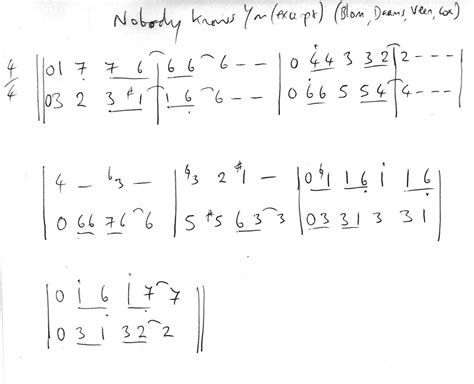 Nobody Knows Ym (excerpt) (Blom, Daams, Veen, Cox)
4/4 || 0 1 7 7 6 | 6 6 6 - - || 0 4 4 3 3 2 | 2 - - -
|| 0 3 2 3 #1 | 1 6 6 - - || 0 6 6 5 5 4 | 4 - - - |
| 4 - b3 - || b3 2 #1 - | 0 b1 1 6 i 1 6 |
| 0 6 6 7 6 6 || 5 #5 6 3 3 | 0 3 3 1 3 3 1 |
| 0 i 6 i 7 7 ||
| 0 3 1 3 2 2 ||